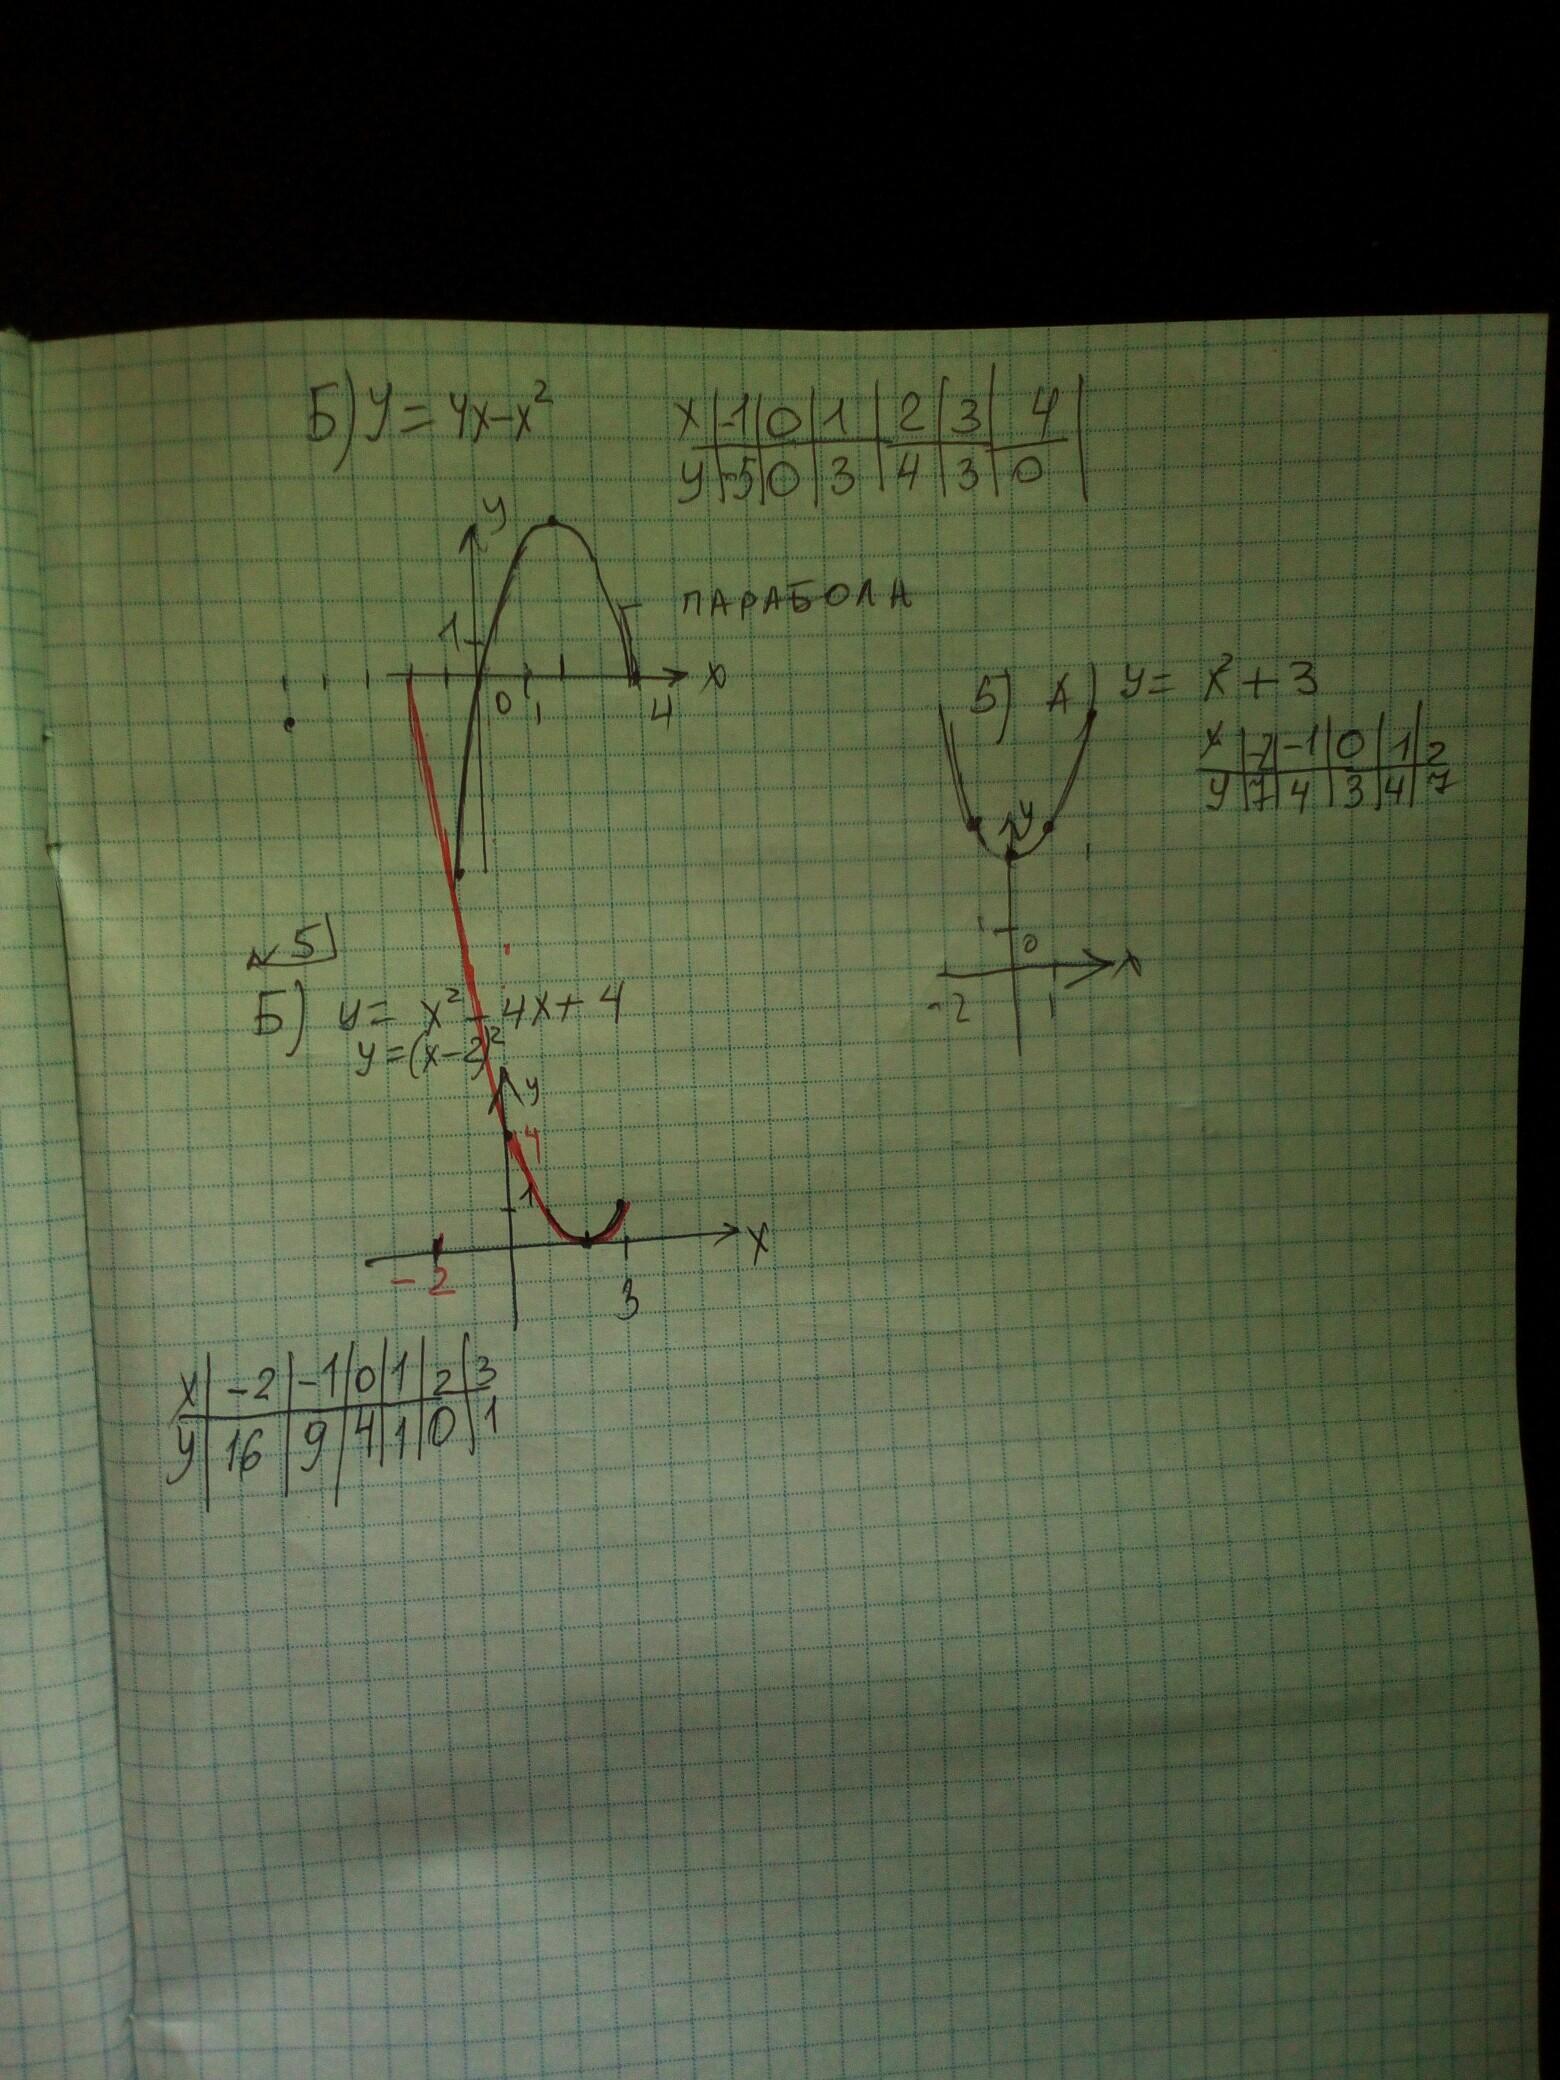 Б) y = 4x-x²
x | -1 | 0 | 1 | 2 | 3 | 4
y | -5 | 0 | 3 | 4 | 3 | 0
y
1
ПАРАБОЛА
0 1 4 x
5) А) y = x² + 3
x | -2 | -1 | 0 | 1 | 2
y | 7 | 4 | 3 | 4 | 7
y
1 0
x
-2 1
√ 5
Б) y = x² - 4x + 4
y = (x-2)²
y
4
1
x
-2 3
x | -2 | -1 | 0 | 1 | 2 | 3
y | 16 | 9 | 4 | 1 | 0 | 1